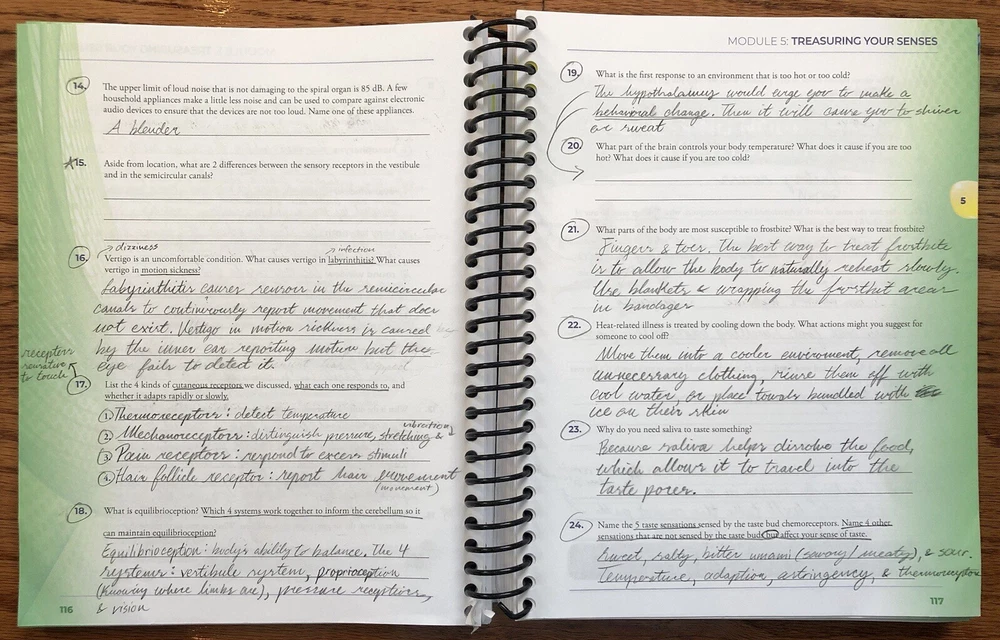 14. The upper limit of loud noise that is not damaging to the spiral organ is 85 dB. A few
household appliances make a little less noise and can be used to compare against electronic
audio devices to ensure that the devices are not too loud. Name one of these appliances.
A blender
*15. Aside from location, what are 2 differences between the sensory receptors in the vestibule
and in the semicircular canals?
dizziness
infection
16. Vertigo is an uncomfortable condition. What causes vertigo in labyrinthitis? What causes
vertigo in motion sickness?
Labyrinthitis causes sensors in the semicircular
canals to continuously report movement that does
not exist. Vertigo in motion sickness is caused
by the inner ear reporting motion but the
eye fails to detect it.
receptors
sensative
to touch
17. List the 4 kinds of cutaneous receptors we discussed, what each one responds to, and
whether it adapts rapidly or slowly.
1. Thermoreceptors: detect temperature
vibration
2. Mechanoreceptors: distinguish pressure, stretching &
3. Pain receptors: respond to excess stimuli
4. Hair follicle receptor: report hair movement
(movement)
18. What is equilibrioception? Which 4 systems work together to inform the cerebellum so it
can maintain equilibrioception?
Equilibrioception: body's ability to balance. The 4
systems: vestibule system, proprioception
(knowing where limbs are), pressure receptors,
& vision
116
MODULE 5: TREASURING YOUR SENSES
19. What is the first response to an environment that is too hot or too cold?
The hypothalamus would urge you to make a
behavioral change. Then it will cause you to shiver
or sweat
20. What part of the brain controls your body temperature? What does it cause if you are too
hot? What does it cause if you are too cold?
5
21. What parts of the body are most susceptible to frostbite? What is the best way to treat frostbite?
Fingers & toes. The best way to treat frostbite
is to allow the body to naturally reheat slowly.
Use blankets & wrapping the frostbit areas
in bandages
22. Heat-related illness is treated by cooling down the body. What actions might you suggest for
someone to cool off?
Move them into a cooler enviroment, remove all
unnecessary clothing, rinse them off with
cool water, or place towels bundled with
ice on their skin
23. Why do you need saliva to taste something?
Because saliva helps dissolve the food,
which allows it to travel into the
taste pores.
24. Name the 5 taste sensations sensed by the taste bud chemoreceptors. Name 4 other
sensations that are not sensed by the taste buds but affect your sense of taste.
Sweet, salty, bitter umami (savory/meaty), & sour.
Temperature, adaption, astringency, & thermoreceptors
117